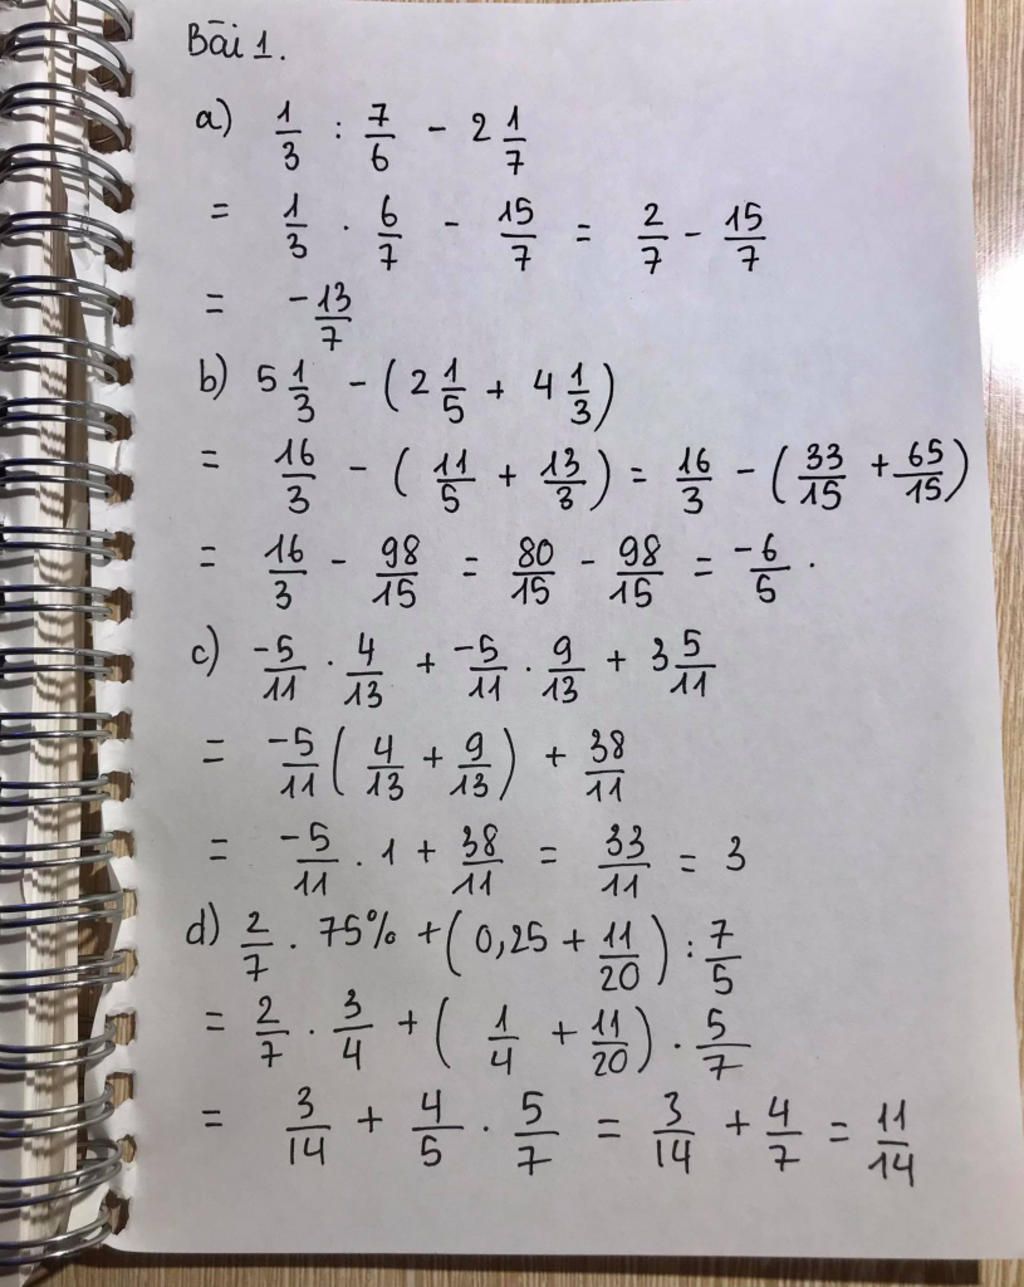 Bài 1.
a) 1/3 : 7/6 - 2 1/7
= 1/3 . 6/7 - 15/7 = 2/7 - 15/7
= -13/7
b) 5 1/3 - (2 1/5 + 4 1/3)
= 16/3 - (11/5 + 13/3) = 16/3 - (33/15 + 65/15)
= 16/3 - 98/15 = 80/15 - 98/15 = -6/5 .
c) -5/11 . 4/13 + -5/11 . 9/13 + 3 5/11
= -5/11 (4/13 + 9/13) + 38/11
= -5/11 . 1 + 38/11 = 33/11 = 3
d) 2/7 . 75% + (0,25 + 11/20) : 7/5
= 2/7 . 3/4 + (1/4 + 11/20) . 5/7
= 3/14 + 4/5 . 5/7 = 3/14 + 4/7 = 11/14